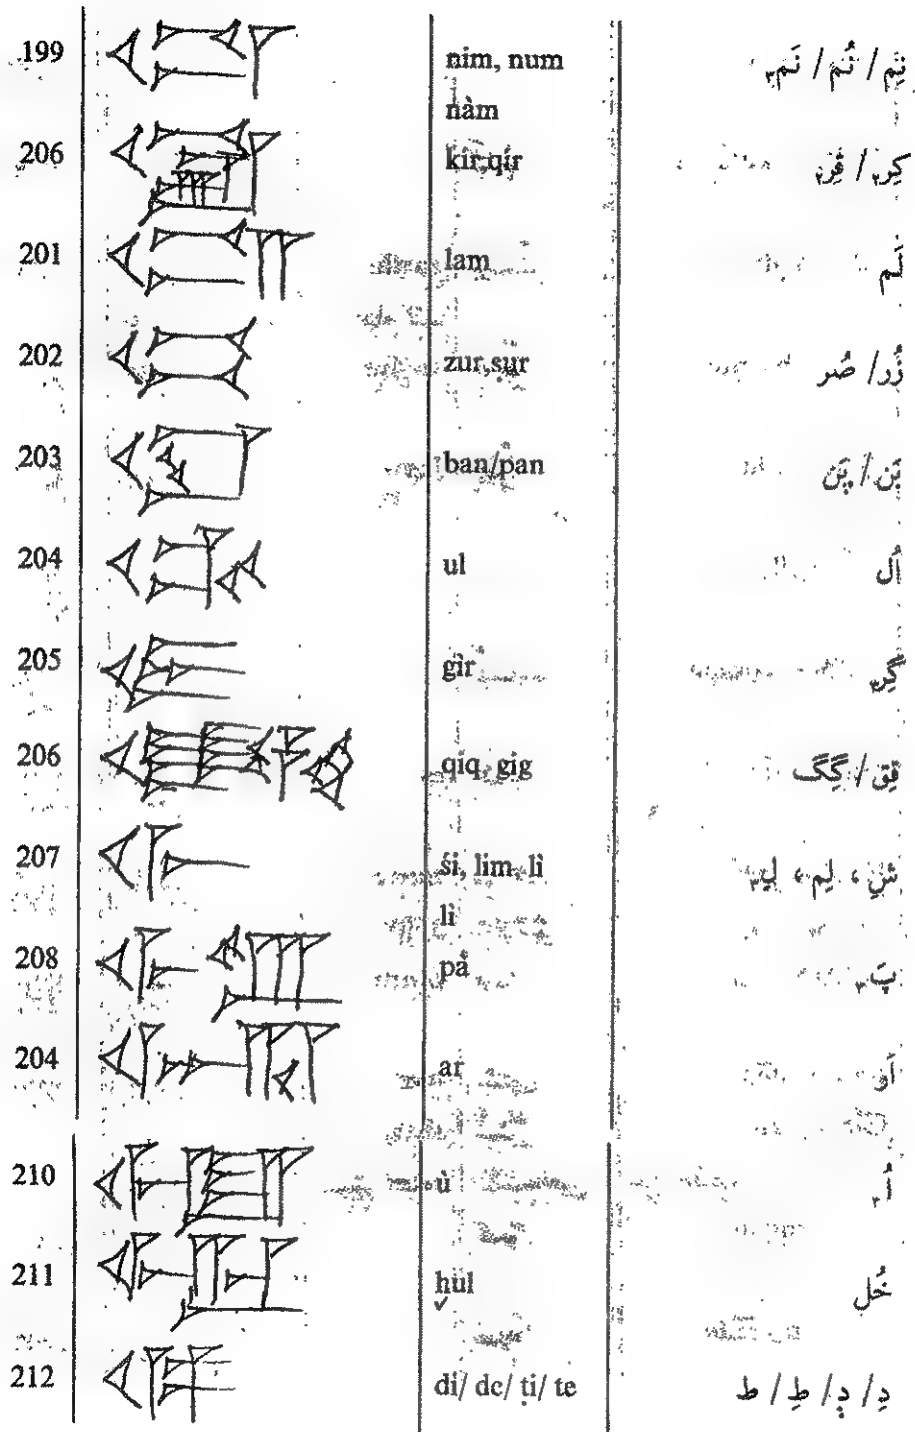 199 nim, num نِم / نُم / نَم₃
nàm
206 kír,qír كِر₂ / قِر₂
201 lam لَم
202 zur,ṣur زُر / صُر
203 ban/pan بَن / پَن
204 ul اُل
205 gìr گِر₃
206 qiq, gig قِق / گِگ
207 ši, lim, lì شِ ، لِم ، لِ₃
lì
208 pà پَ₃
204 ar اَر
210 ù اُ₃
211 ḫul خُل
212 di/ dc/ ṭi/ te دِ / دٍ / طِ / ط